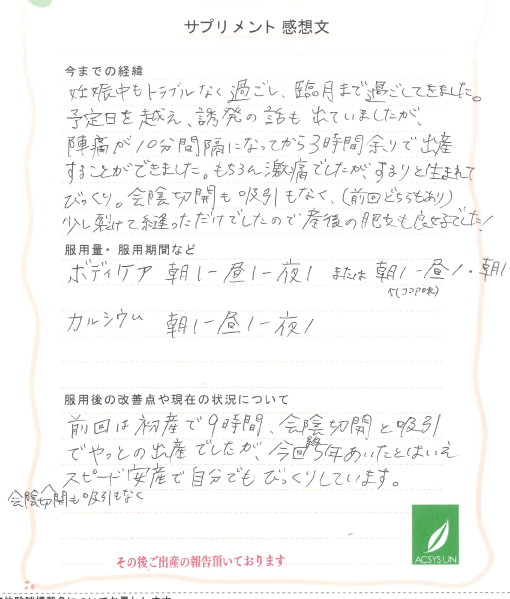 サプリメント 感想文
今までの経緯
妊娠中もトラブルなく過ごし、臨月まで過ごしてきました。
予定日を越え、誘発の話も出ていましたが、
陣痛が10分間隔になってから3時間余りで出産
することができました。もちろん激痛でしたがするりと生まれて
びっくり。会陰切開も吸引もなく、(前回どちらもあり)
少し裂けて縫っただけでしたので産後の肥立も良好でした!
服用量・服用期間など
ボディケア 朝1-昼1-夜1 または 朝1-昼1・朝1
(ココア味)
カルシウム 朝1-昼1-夜1
服用後の改善点や現在の状況について
前回は初産で9時間、会陰切開と吸引
でやっとの出産でしたが、今回5年あいたとはいえ
スピード安産で自分でもびっくりしています。
会陰切開も吸引もなく
ACSYSUN
その後ご出産の報告頂いております